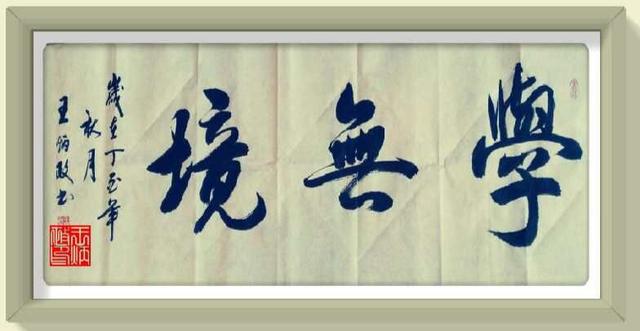 學無境
歲在丁酉年
秋月
王炳政書